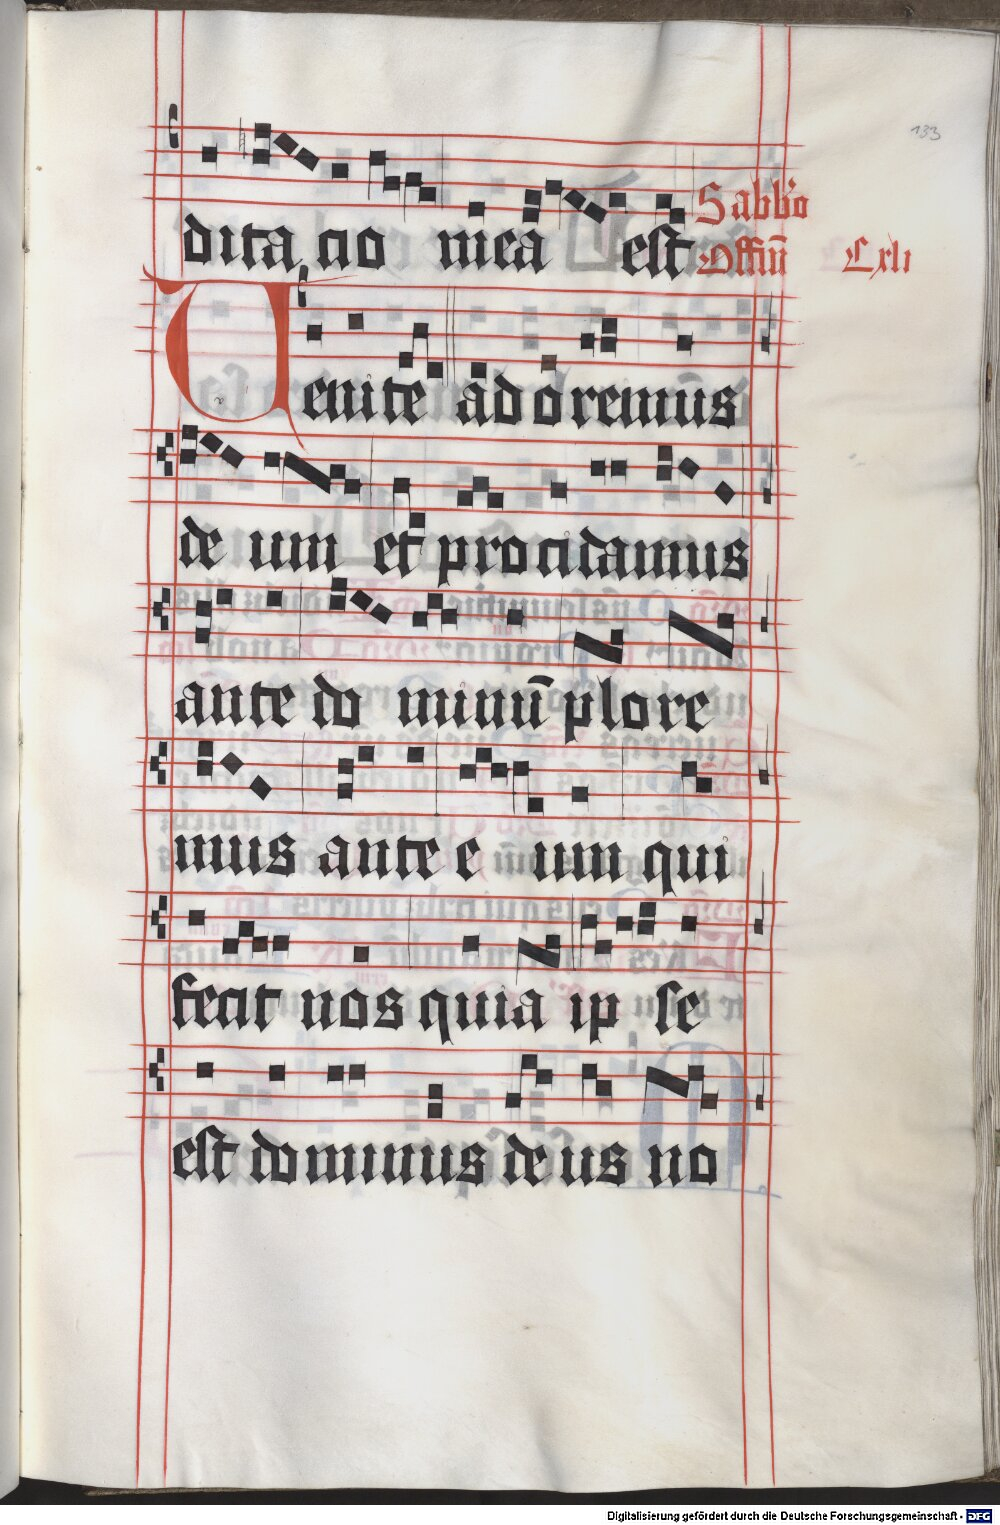 133
dita cio mea est Sabb'o
Offiū Cxli
Uenite adoremus
de um et pro cidamus
ante do minū plore
mus ante e um qui
fecit nos quia ip se
est dominus de us no
Digitalisierung gefördert durch die Deutsche Forschungsgemeinschaft - DFG